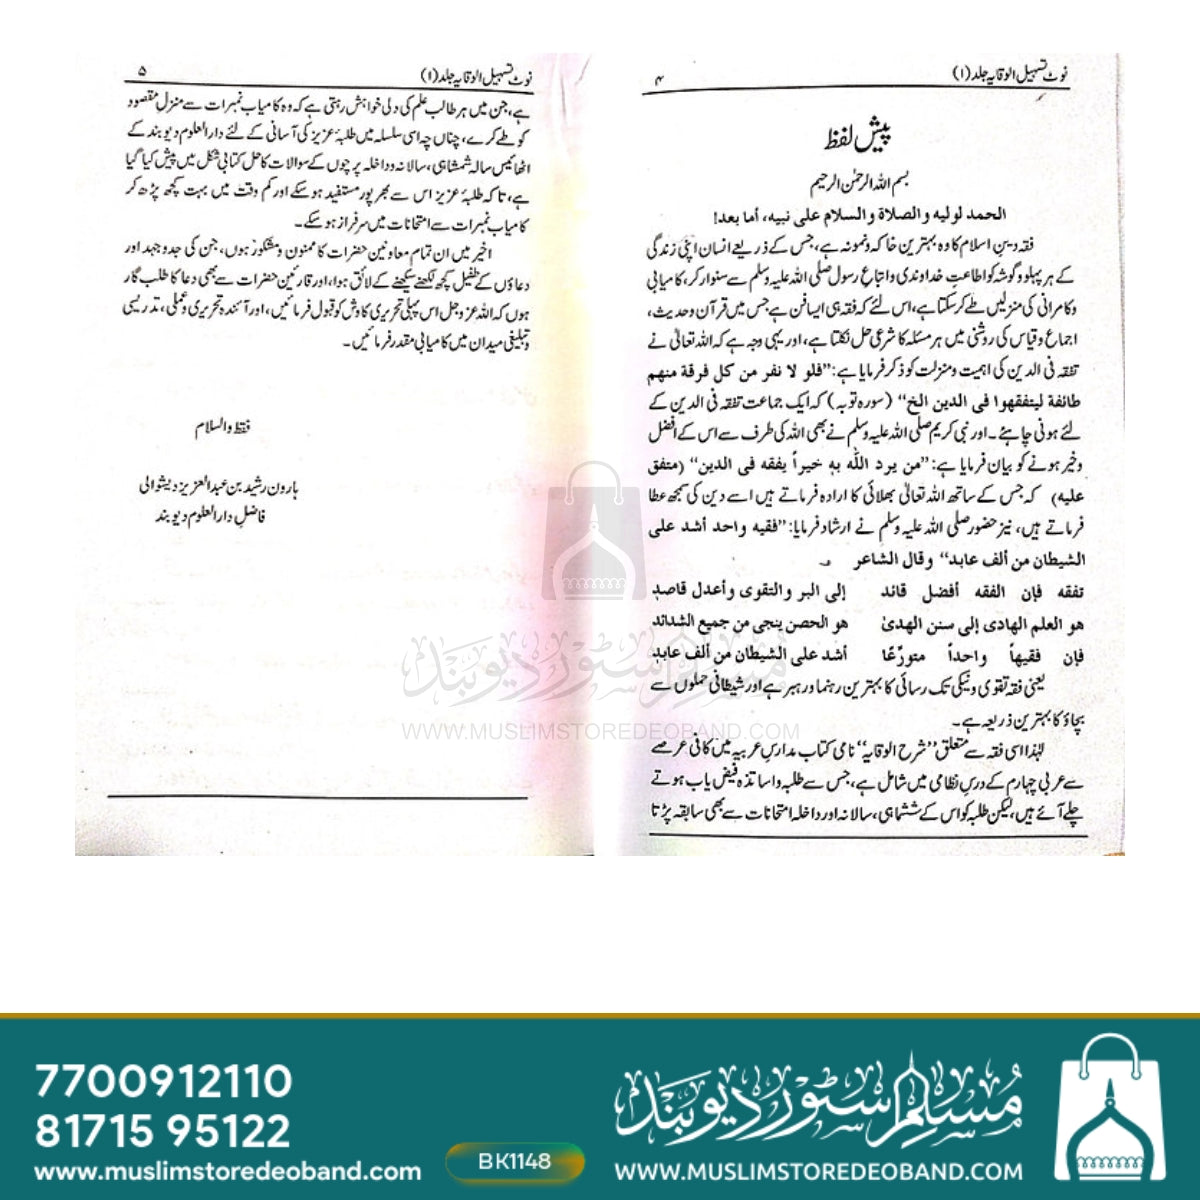 نوٹ تسہیل الوقایہ جلد (۱)
۴
پیش لفظ
بسم اللہ الرحمٰن الرحیم
الحمد لولیه و الصلاة و السلام علی نبیه، أما بعد!
فقہ دینِ اسلام کا وہ بہترین خاکہ و نمونہ ہے، جس کے ذریعے انسان اپنی زندگی
کے ہر پہلو و گوشہ کو اطاعتِ خداوندی و اتباعِ رسول صلی اللہ علیہ وسلم سے سنوار کر، کامیابی
و کامرانی کی منزلیں طے کرسکتا ہے، اس لئے کہ فقہ ہی ایسا فن ہے جس میں قرآن و حدیث،
اجماع و قیاس کی روشنی میں ہر مسئلہ کا شرعی حل نکلتا ہے، اور یہی وجہ ہے کہ اللہ تعالیٰ نے
تفقہ فی الدین کی اہمیت و منزلت کو ذکر فرمایا ہے: ”فلو لا نفر من کل فرقة منهم
طائفة لیتفقهوا فی الدین الخ“ (سورہ توبہ) کہ ایک جماعت تفقہ فی الدین کے
لئے ہونی چاہئے۔ اور نبی کریم صلی اللہ علیہ وسلم نے بھی اللہ کی طرف سے اس کے افضل
و خیر ہونے کو بیان فرمایا ہے: ”من یرد اللّٰہ به خیراً یفقه فی الدین“ (متفق
علیه) کہ جس کے ساتھ اللہ تعالیٰ بھلائی کا ارادہ فرماتے ہیں اسے دین کی سمجھ عطا
فرماتے ہیں، نیز حضور صلی اللہ علیہ وسلم نے ارشاد فرمایا: ”فقیه واحد أشد علی
الشیطان من ألف عابد“ وقال الشاعر
تفقه فإن الفقه أفضل قائد إلی البر والتقوی و أعدل قاصدِ
هو العلم الهادی إلی سنن الهدیٰ هو الحصن ینجی من جمیع الشدائد
فإن فقیهاً واحداً متورِّعًا أشد علی الشیطان من ألف عابدِ
یعنی فقہ تقوی و نیکی تک رسائی کا بہترین رہنما و رہبر ہے اور شیطانی حملوں سے
بچاؤ کا بہترین ذریعہ ہے۔
لہٰذا اسی فقہ سے متعلق ”شرح الوقایہ“ نامی کتاب مدارسِ عربیہ میں کافی عرصے
سے عربی چہارم کے درسِ نظامی میں شامل ہے، جس سے طلبہ و اساتذہ فیض یاب ہوتے
چلے آئے ہیں، لیکن طلبہ کو اس کے ششماہی، سالانہ اور داخلہ امتحانات سے بھی سابقہ پڑتا
نوٹ تسہیل الوقایہ جلد (۱)
۵
ہے، جن میں ہر طالب علم کی دلی خواہش رہتی ہے کہ وہ کامیاب نمبرات سے منزلِ مقصود
کو طے کرے، چناں چہ اسی سلسلہ میں طلبۂ عزیز کی آسانی کے لئے دارالعلوم دیوبند کے
اٹھائیس سالہ شمشاہی، سالانہ و داخلہ پرچوں کے سوالات کا حل کتابی شکل میں پیش کیا گیا
ہے، تاکہ طلبۂ عزیز اس سے بھرپور مستفید ہو سکے اور کم وقت میں بہت کچھ پڑھ کر
کامیاب نمبرات سے امتحانات میں سرفراز ہو سکے۔
اخیر میں ان تمام معاونین حضرات کا ممنون و مشکور ہوں، جن کی جدوجہد اور
دعاؤں کے طفیل کچھ لکھنے سیکھنے کے لائق ہوا، اور قارئین حضرات سے بھی دعا کا طلب گار
ہوں کہ اللہ عزوجل اس پہلی تحریری کاوش کو قبول فرمائیں، اور آئندہ تحریری و عملی، تدریسی
و تبلیغی میدان میں کامیابی مقدر فرمائیں۔
فقط والسلام
ہارون رشید بن عبدالعزیز دیشوالی
فاضلِ دارالعلوم دیوبند
مسلم سٹور دیوبند
WWW.MUSLIMSTOREDEOBAND.COM
7700912110
81715 95122
www.muslimstoredeoband.com
BK1148
مسلم سٹور دیوبند
WWW.MUSLIMSTOREDEOBAND.COM